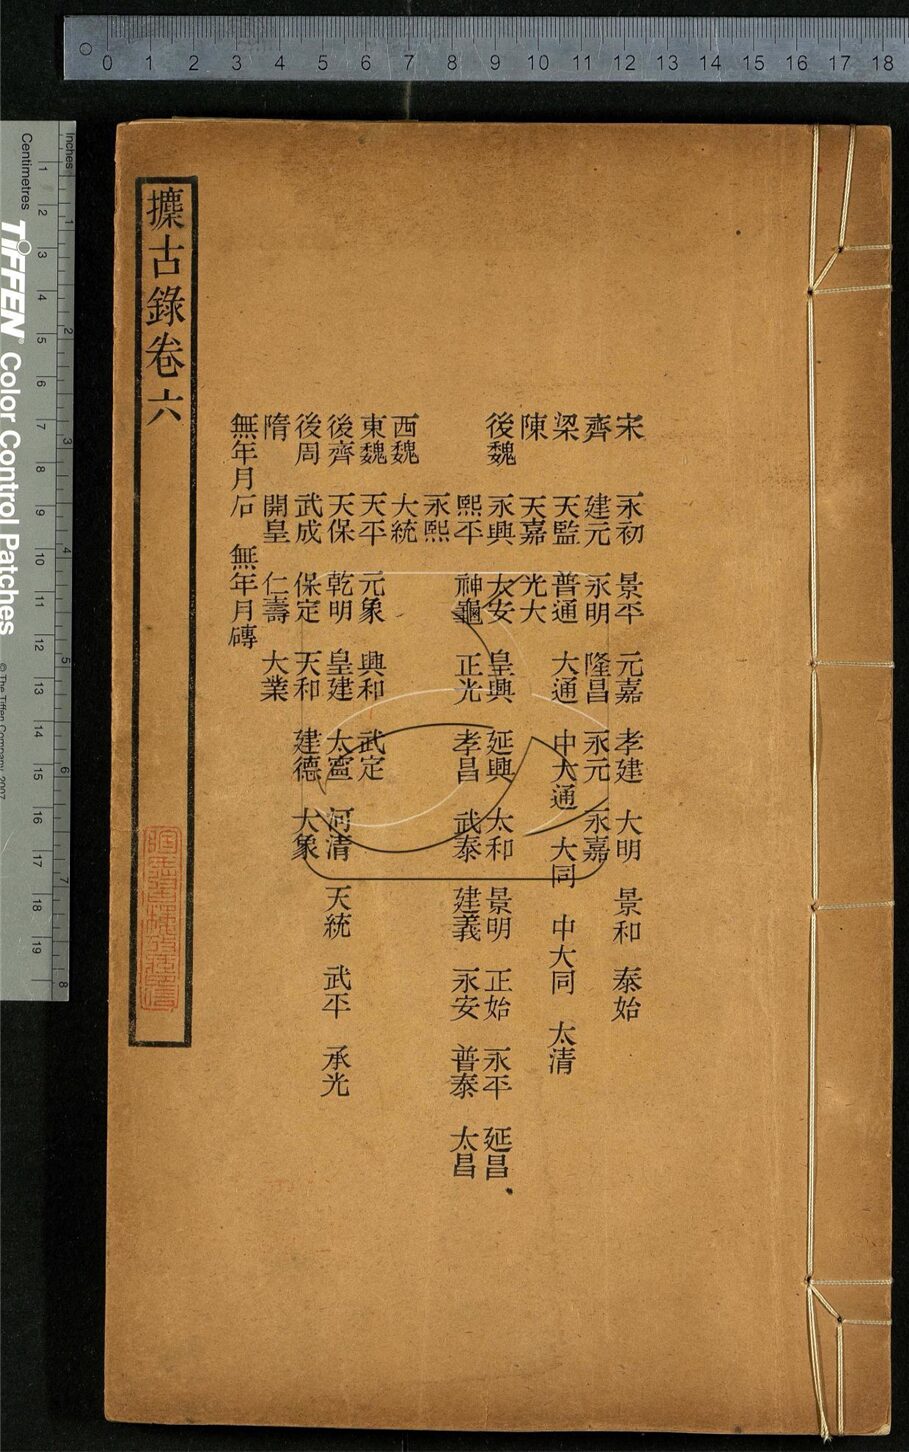 攈古錄卷六
宋　永初　景平　元嘉　孝建　大明　景和　泰始
齊　建元　永明　隆昌　永元　永嘉
梁　天監　普通　大通　中大通　大同　中大同　太清
陳　天嘉　光大
後魏　永興　太安　皇興　延興　太和　景明　正始　永平　延昌
熙平　神龜　正光　孝昌　武泰　建義　永安　普泰　太昌
永熙
西魏　大統
東魏　天平　元象　興和　武定
後齊　天保　乾明　皇建　太寧　河清　天統　武平　承光
後周　武成　保定　天和　建德　大象
隋　開皇　仁壽　大業
無年月石　無年月磚
0 1 2 3 4 5 6 7 8 9 10 11 12 13 14 15 16 17 18
Inches 1 2 3 4 5 6 7 8
Centimetres 1 2 3 4 5 6 7 8 9 10 11 12 13 14 15 16 17 18 19
TIFFEN Color Control Patches
© The Tiffen Company, 2007